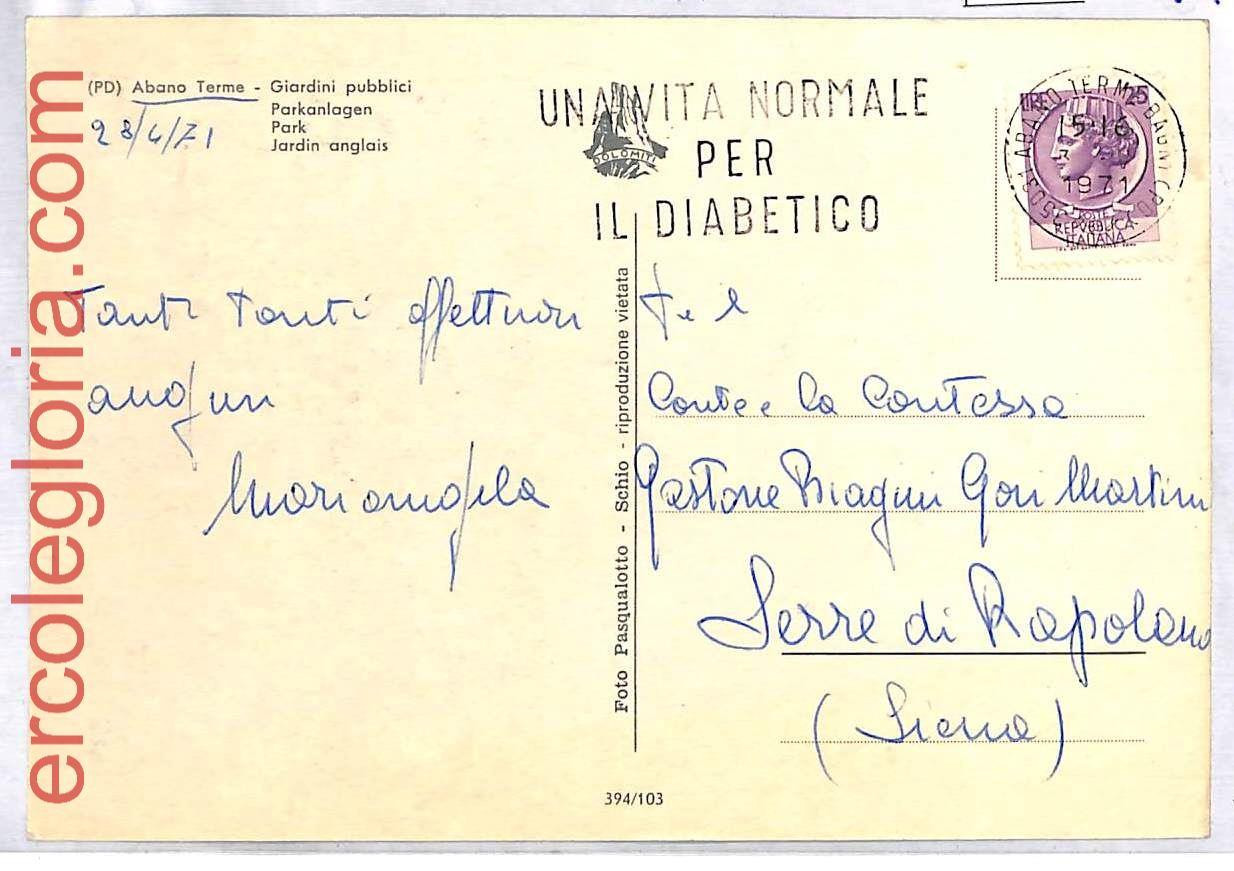 (PD) Abano Terme - Giardini pubblici
Parkanlagen
Park
Jardin anglais
28/4/71
UNA VITA NORMALE
PER
IL DIABETICO
DOLOMITI
LIRE 25
15-16
1971
POSTE
REPVBBLICA
ITALIANA
35031 ABANO TERME BAGNI (PD)
Tanti Tanti affettuosi
auguri
Mariangela
Conte e la Contessa
Gastone Biagini Gori Martini
Serre di Rapolano
(Siena)
Foto Pasqualotto - Schio - riproduzione vietata
394/103
ercolegloria.com